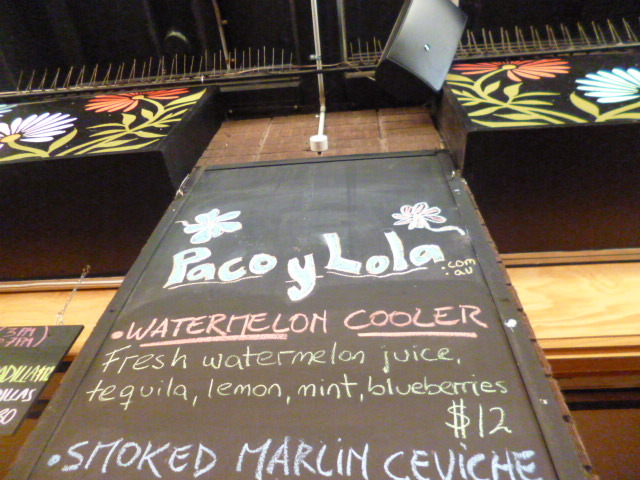 Paco y Lola
.com
.au
•WATERMELON COOLER
Fresh watermelon juice,
tequila, lemon, mint, blueberries
$12
•SMOKED MARLIN CEVICHE